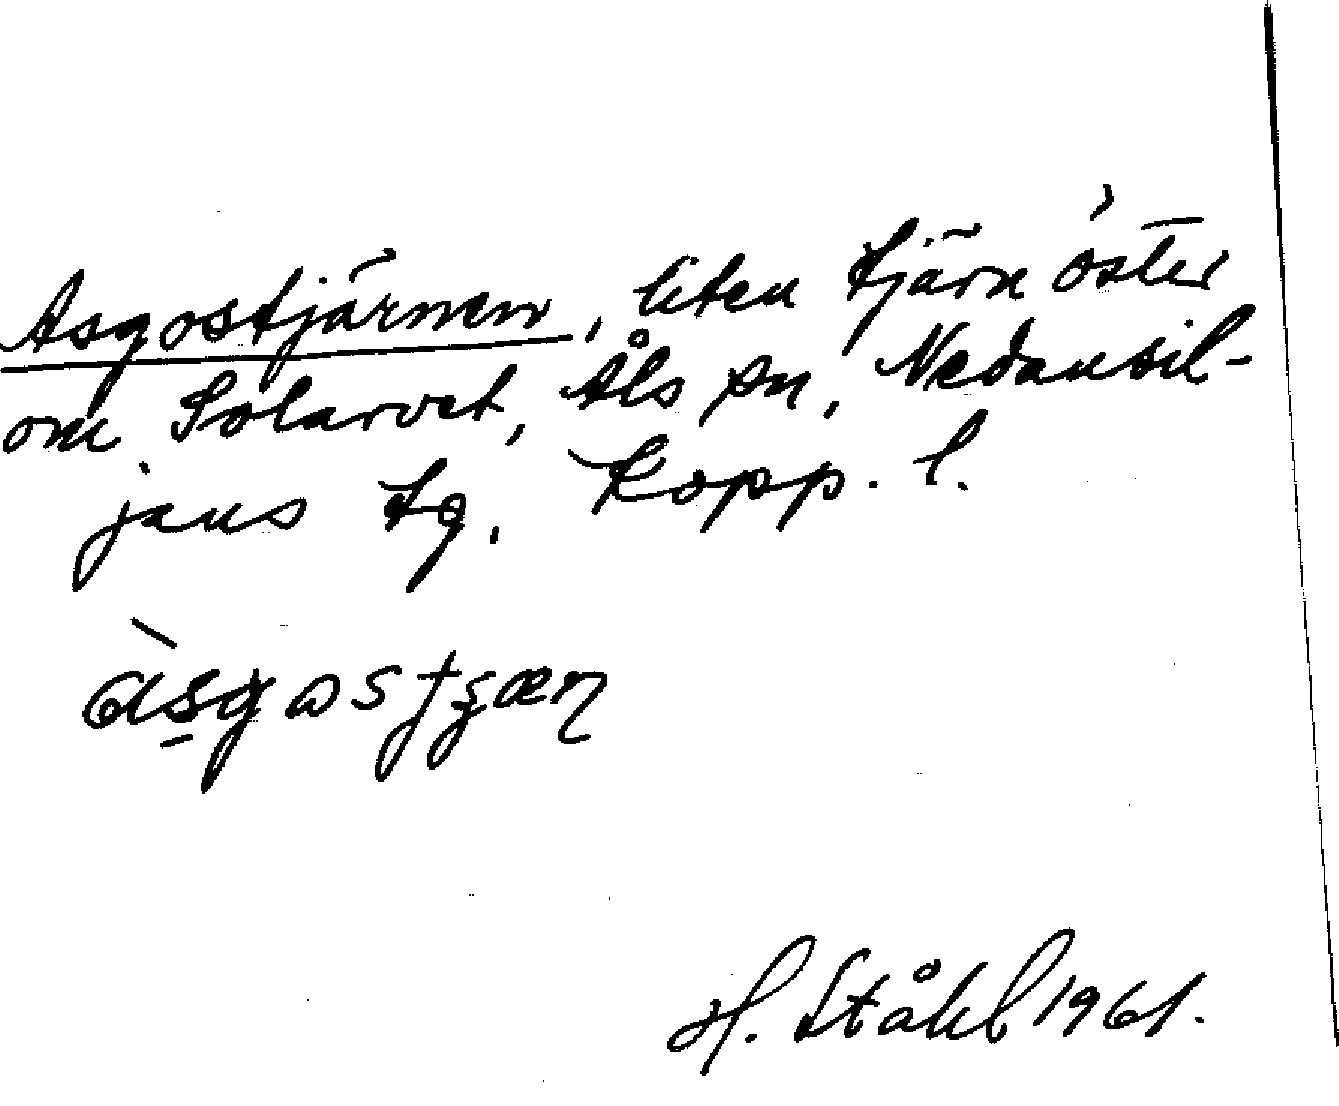 Asgostjärnen, liten tjärn öster
om Solarvet, Åls sn, Nedansil-
jans tg, Kopp. l.
àsgɷstʒæɳ
H. Ståhl 1961.